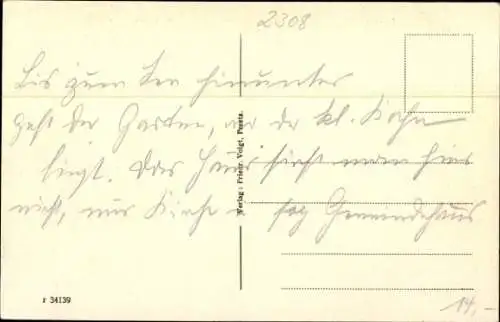 2308
Bis zum See hinunter
geht der Garten, wo der kl. Kahn
liegt. Das Haus sieht man hier
nicht, nur Kirche u. sog. Gemeindehaus
Verlag: Friedr. Voigt, Preetz.
r 34139
14,-